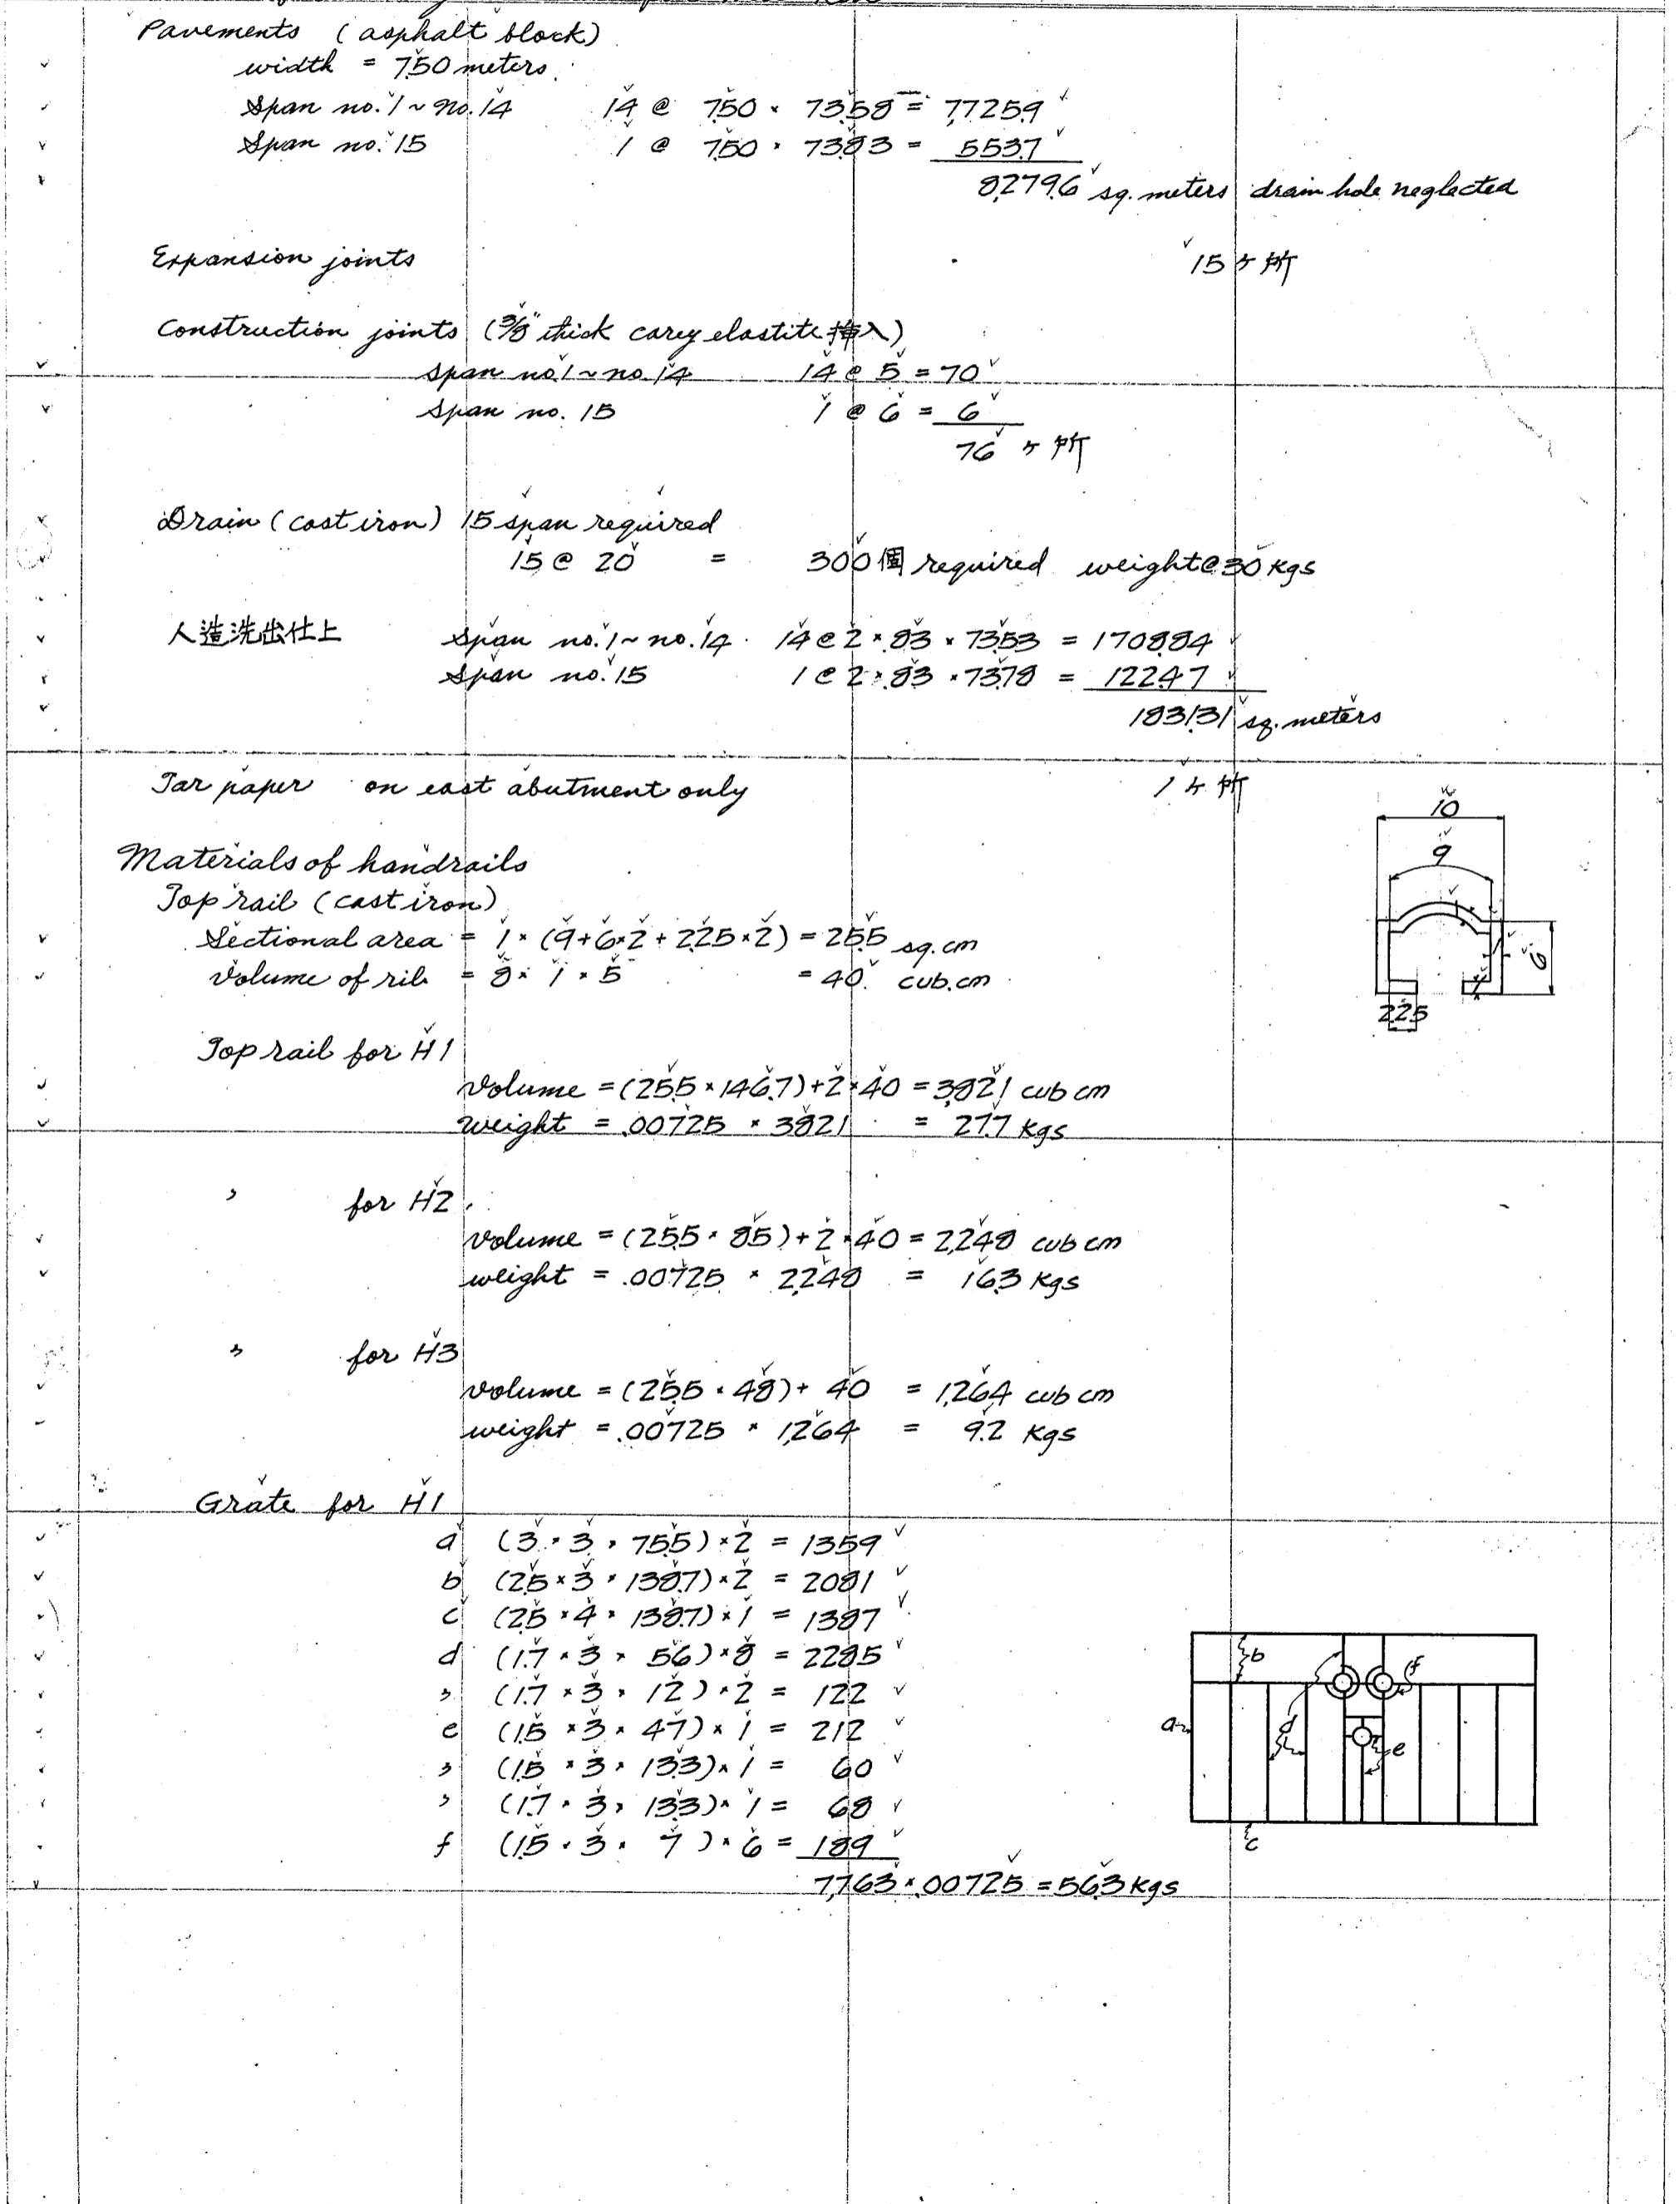 Pavements (asphalt block)
width = 7.50 meters.
Span no. 1 ~ no. 14 14 @ 7.50 × 73.58 = 7,725.9
Span no. 15 1 @ 7.50 × 73.83 = 553.7
8,279.6 sq. meters drain hole neglected
Expansion joints 15ヶ所
Construction joints (3/8" thick carey elastite 挿入)
span no. 1 ~ no. 14 14 @ 5 = 70
Span no. 15 1 @ 6 = 6
76ヶ所
Drain (cast iron) 15 span required
15 @ 20 = 300個 required weight @ 30 Kgs
人造洗出仕上 Span no. 1 ~ no. 14 14 @ 2 × .83 × 73.53 = 1708.84
Span no. 15 1 @ 2 × .83 × 73.78 = 122.47
1831.31 sq. meters
Tar paper on east abutment only 1ヶ所
Materials of handrails
Top rail (cast iron)
Sectional area = 1 × (9 + 6 × 2 + 2.25 × 2) = 25.5 sq. cm
Volume of rib = 8 × 1 × 5 = 40. cub. cm
10
9
1
1
6
1
2.25
Top rail for H1
Volume = (25.5 × 146.7) + 2 × 40 = 3,821 cub cm
weight = .00725 × 3821 = 27.7 Kgs
〃 for H2.
Volume = (25.5 × 85) + 2 × 40 = 2,248 cub cm
weight = .00725 × 2,248 = 16.3 Kgs
〃 for H3
Volume = (25.5 × 48) + 40 = 1,264 cub cm
weight = .00725 × 1,264 = 9.2 Kgs
Grate for H1
a (3 × 3 × 75.5) × 2 = 1359
b (2.5 × 3 × 138.7) × 2 = 2081
c (2.5 × 4 × 138.7) × 1 = 1387
d (1.7 × 3 × 56) × 8 = 2285
〃 (1.7 × 3 × 12) × 2 = 122
e (1.5 × 3 × 47) × 1 = 212
〃 (1.5 × 3 × 13.3) × 1 = 60
〃 (1.7 × 3 × 13.3) × 1 = 68
f (1.5 × 3 × 7) × 6 = 189
7,763 × .00725 = 56.3 Kgs
b
f
a
d
e
c